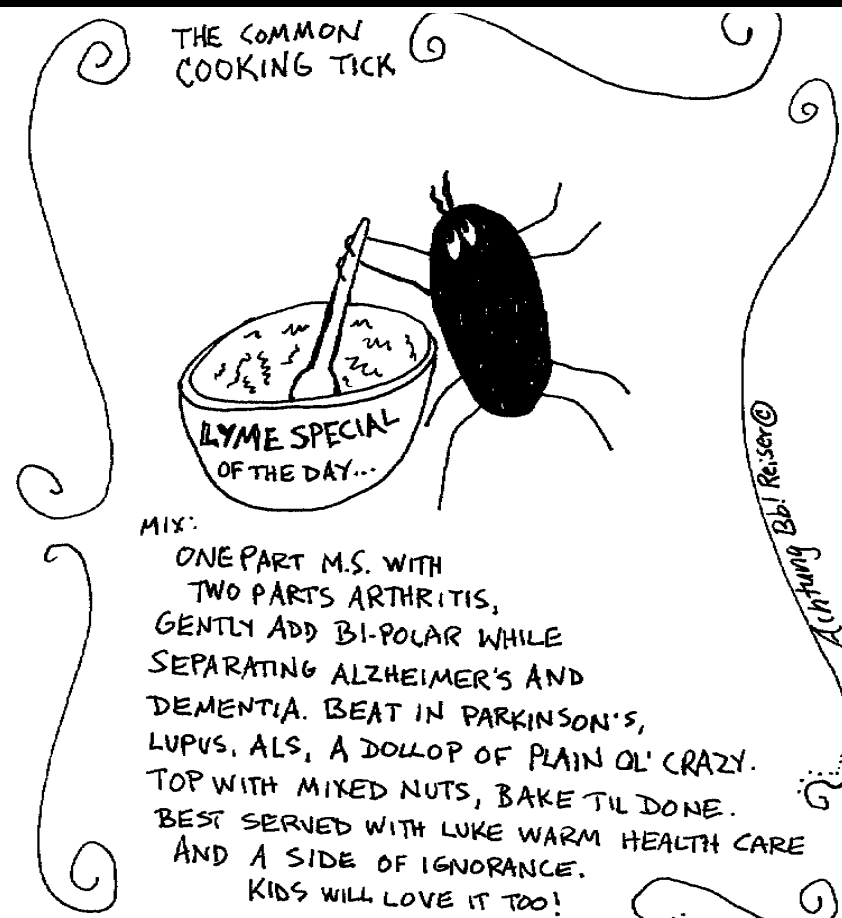 THE COMMON
COOKING TICK
LYME SPECIAL
OF THE DAY...
MIX:
ONE PART M.S. WITH
TWO PARTS ARTHRITIS,
GENTLY ADD BI-POLAR WHILE
SEPARATING ALZHEIMER'S AND
DEMENTIA. BEAT IN PARKINSON'S,
LUPUS, ALS, A DOLLOP OF PLAIN OL' CRAZY.
TOP WITH MIXED NUTS, BAKE TIL DONE.
BEST SERVED WITH LUKE WARM HEALTH CARE
AND A SIDE OF IGNORANCE.
KIDS WILL LOVE IT TOO!
Achtung Bb! Reiser©